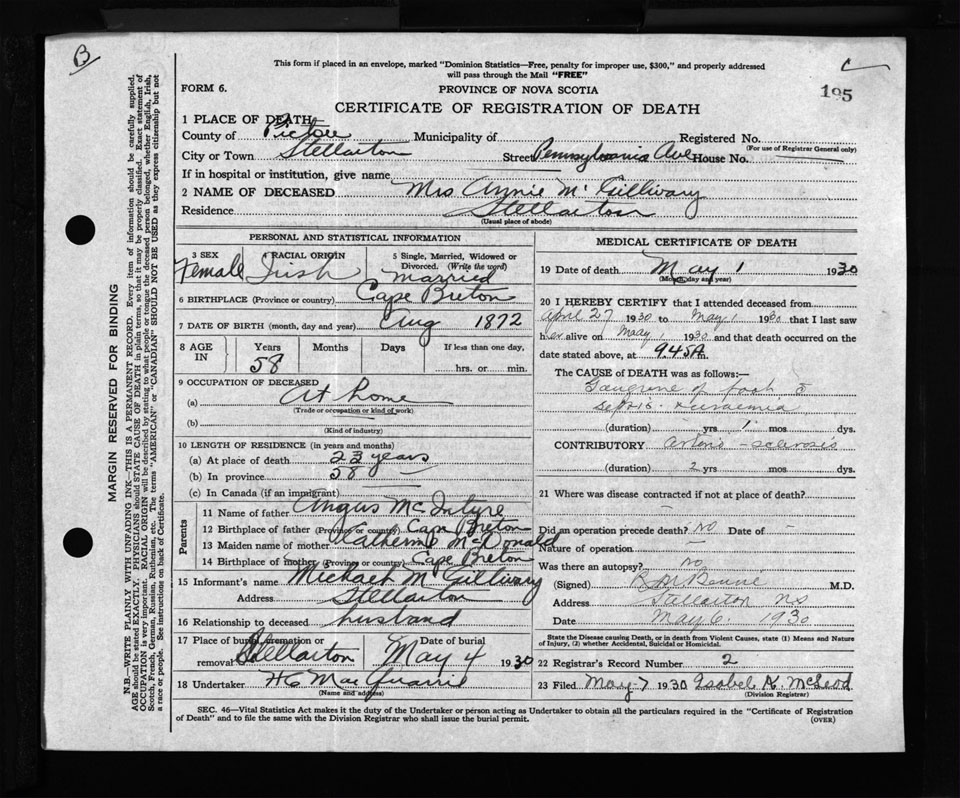 B
C
195
This form if placed in an envelope, marked "Dominion Statistics—Free, penalty for improper use, $300," and properly addressed
will pass through the Mail "FREE"
FORM 6. PROVINCE OF NOVA SCOTIA
CERTIFICATE OF REGISTRATION OF DEATH
1 PLACE OF DEATH
County of Pictou Municipality of Registered No.
(For use of Registrar General only)
City or Town Stellarton Street Pennsylvania Ave House No.
If in hospital or institution, give name
2 NAME OF DECEASED Mrs Annie McGillivary
Residence Stellarton
(Usual place of abode)
MARGIN RESERVED FOR BINDING
N.B.—WRITE PLAINLY WITH UNFADING INK—THIS IS A PERMANENT RECORD. Every item of information should be carefully supplied.
AGE should be stated EXACTLY. PHYSICIANS should STATE CAUSE OF DEATH in plain terms, so that it may be properly classified. Exact statement of
OCCUPATION is very important. RACIAL ORIGIN will be described by stating to what people or tongue the deceased person belonged, whether English, Irish,
Scotch, French, German, Russian, Ruthenian, etc. The terms "AMERICAN" or "CANADIAN" SHOULD NOT BE USED as they express citizenship but not
a race or people. See instructions on back of Certificate.
PERSONAL AND STATISTICAL INFORMATION
3 SEX RACIAL ORIGIN 5 Single, Married, Widowed or
Divorced. (Write the word)
Female Irish Married
6 BIRTHPLACE (Province or country) Cape Breton
7 DATE OF BIRTH (month, day and year) Aug 1872
8 AGE IN Years Months Days If less than one day,
58 hrs. or min.
9 OCCUPATION OF DECEASED
(a) At home
(Trade or occupation or kind of work)
(b)
(Kind of industry)
10 LENGTH OF RESIDENCE (in years and months)
(a) At place of death 23 years
(b) In province 58
(c) In Canada (if an immigrant)
Parents
11 Name of father Angus McIntyre
12 Birthplace of father (Province or country) Cape Breton
13 Maiden name of mother Catherine McDonald
14 Birthplace of mother (Province or country) Cape Breton
15 Informant's name Michael McGillivary
Address Stellarton
16 Relationship to deceased husband
17 Place of burial, cremation or Date of burial
removal Stellarton May 4 1930
18 Undertaker H C MacQuarrie
(Name and address)
MEDICAL CERTIFICATE OF DEATH
19 Date of death May 1 1930
(Month, day and year)
20 I HEREBY CERTIFY that I attended deceased from
April 27 1930 to May 1 1930 that I last saw
her alive on May 1930 and that death occurred on the
date stated above, at 9.45 A m.
The CAUSE of DEATH was as follows:—
Gangrene of foot
sepsis uraemia
(duration) yrs 1 mos days.
CONTRIBUTORY arterio-sclerosis
(duration) 2 yrs mos days.
21 Where was disease contracted if not at place of death?
Did an operation precede death? NO Date of -
Nature of operation -
Was there an autopsy? NO
(Signed) M.D.
Address Stellarton NS
Date May 6. 1930
State the Disease causing Death, or in death from Violent Causes, state (1) Means and Nature
of Injury, (2) whether Accidental, Suicidal or Homicidal.
22 Registrar's Record Number 2
23 Filed May 7 1930 Isobel K. McLeod
(Division Registrar)
SEC. 46—Vital Statistics Act makes it the duty of the Undertaker or person acting as Undertaker to obtain all the particulars required in the "Certificate of Registration
of Death" and to file the same with the Division Registrar who shall issue the burial permit. (OVER)